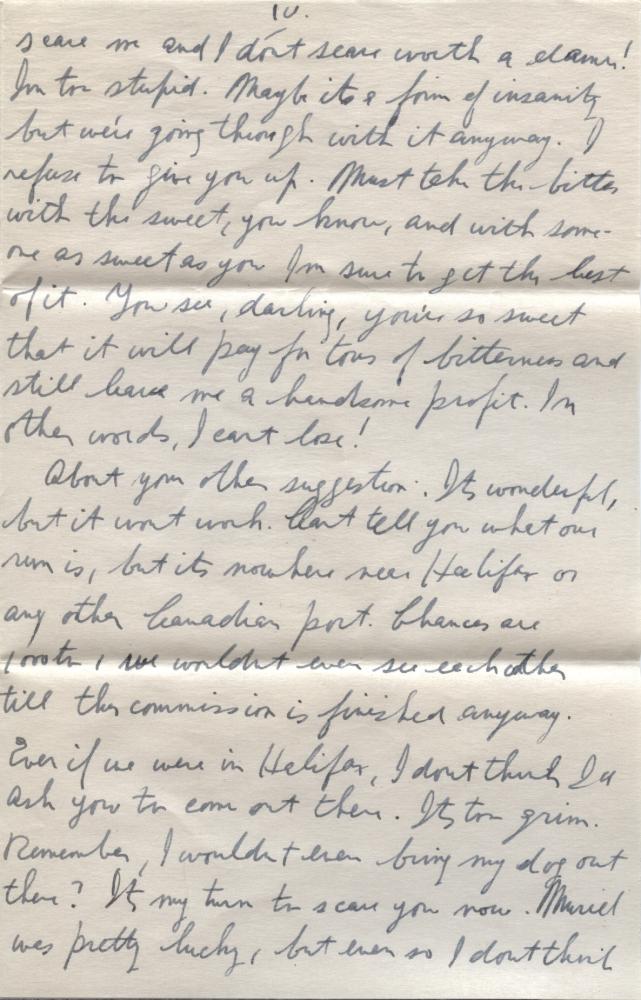 IV.
scare me and I don't scare worth a damn!
Im too stupid. Maybe its a form of insanity
but we're going through with it anyway. I
refuse to give you up. Must take the bitter
with the sweet, you know, and with some-
one as sweet as you Im sure to get the best
of it. You see, darling, you're so sweet
that it will pay for tons of bitterness and
still leave me a handsome profit. In
other words, I cant lose!
About your other suggestion. Its wonderful,
but it wont work. Cant tell you what our
run is, but its nowhere near Halifax or
any other Canadian port. Chances are
100 to 1 we wouldnt even see each other
till this commission is finished anyway.
Even if we were in Halifax, I dont think Id
ask you to come out there. Its too grim.
Remember, I wouldnt even bring my dog out
there? Its my turn to scare you now. Muriel
was pretty lucky, but even so I dont think